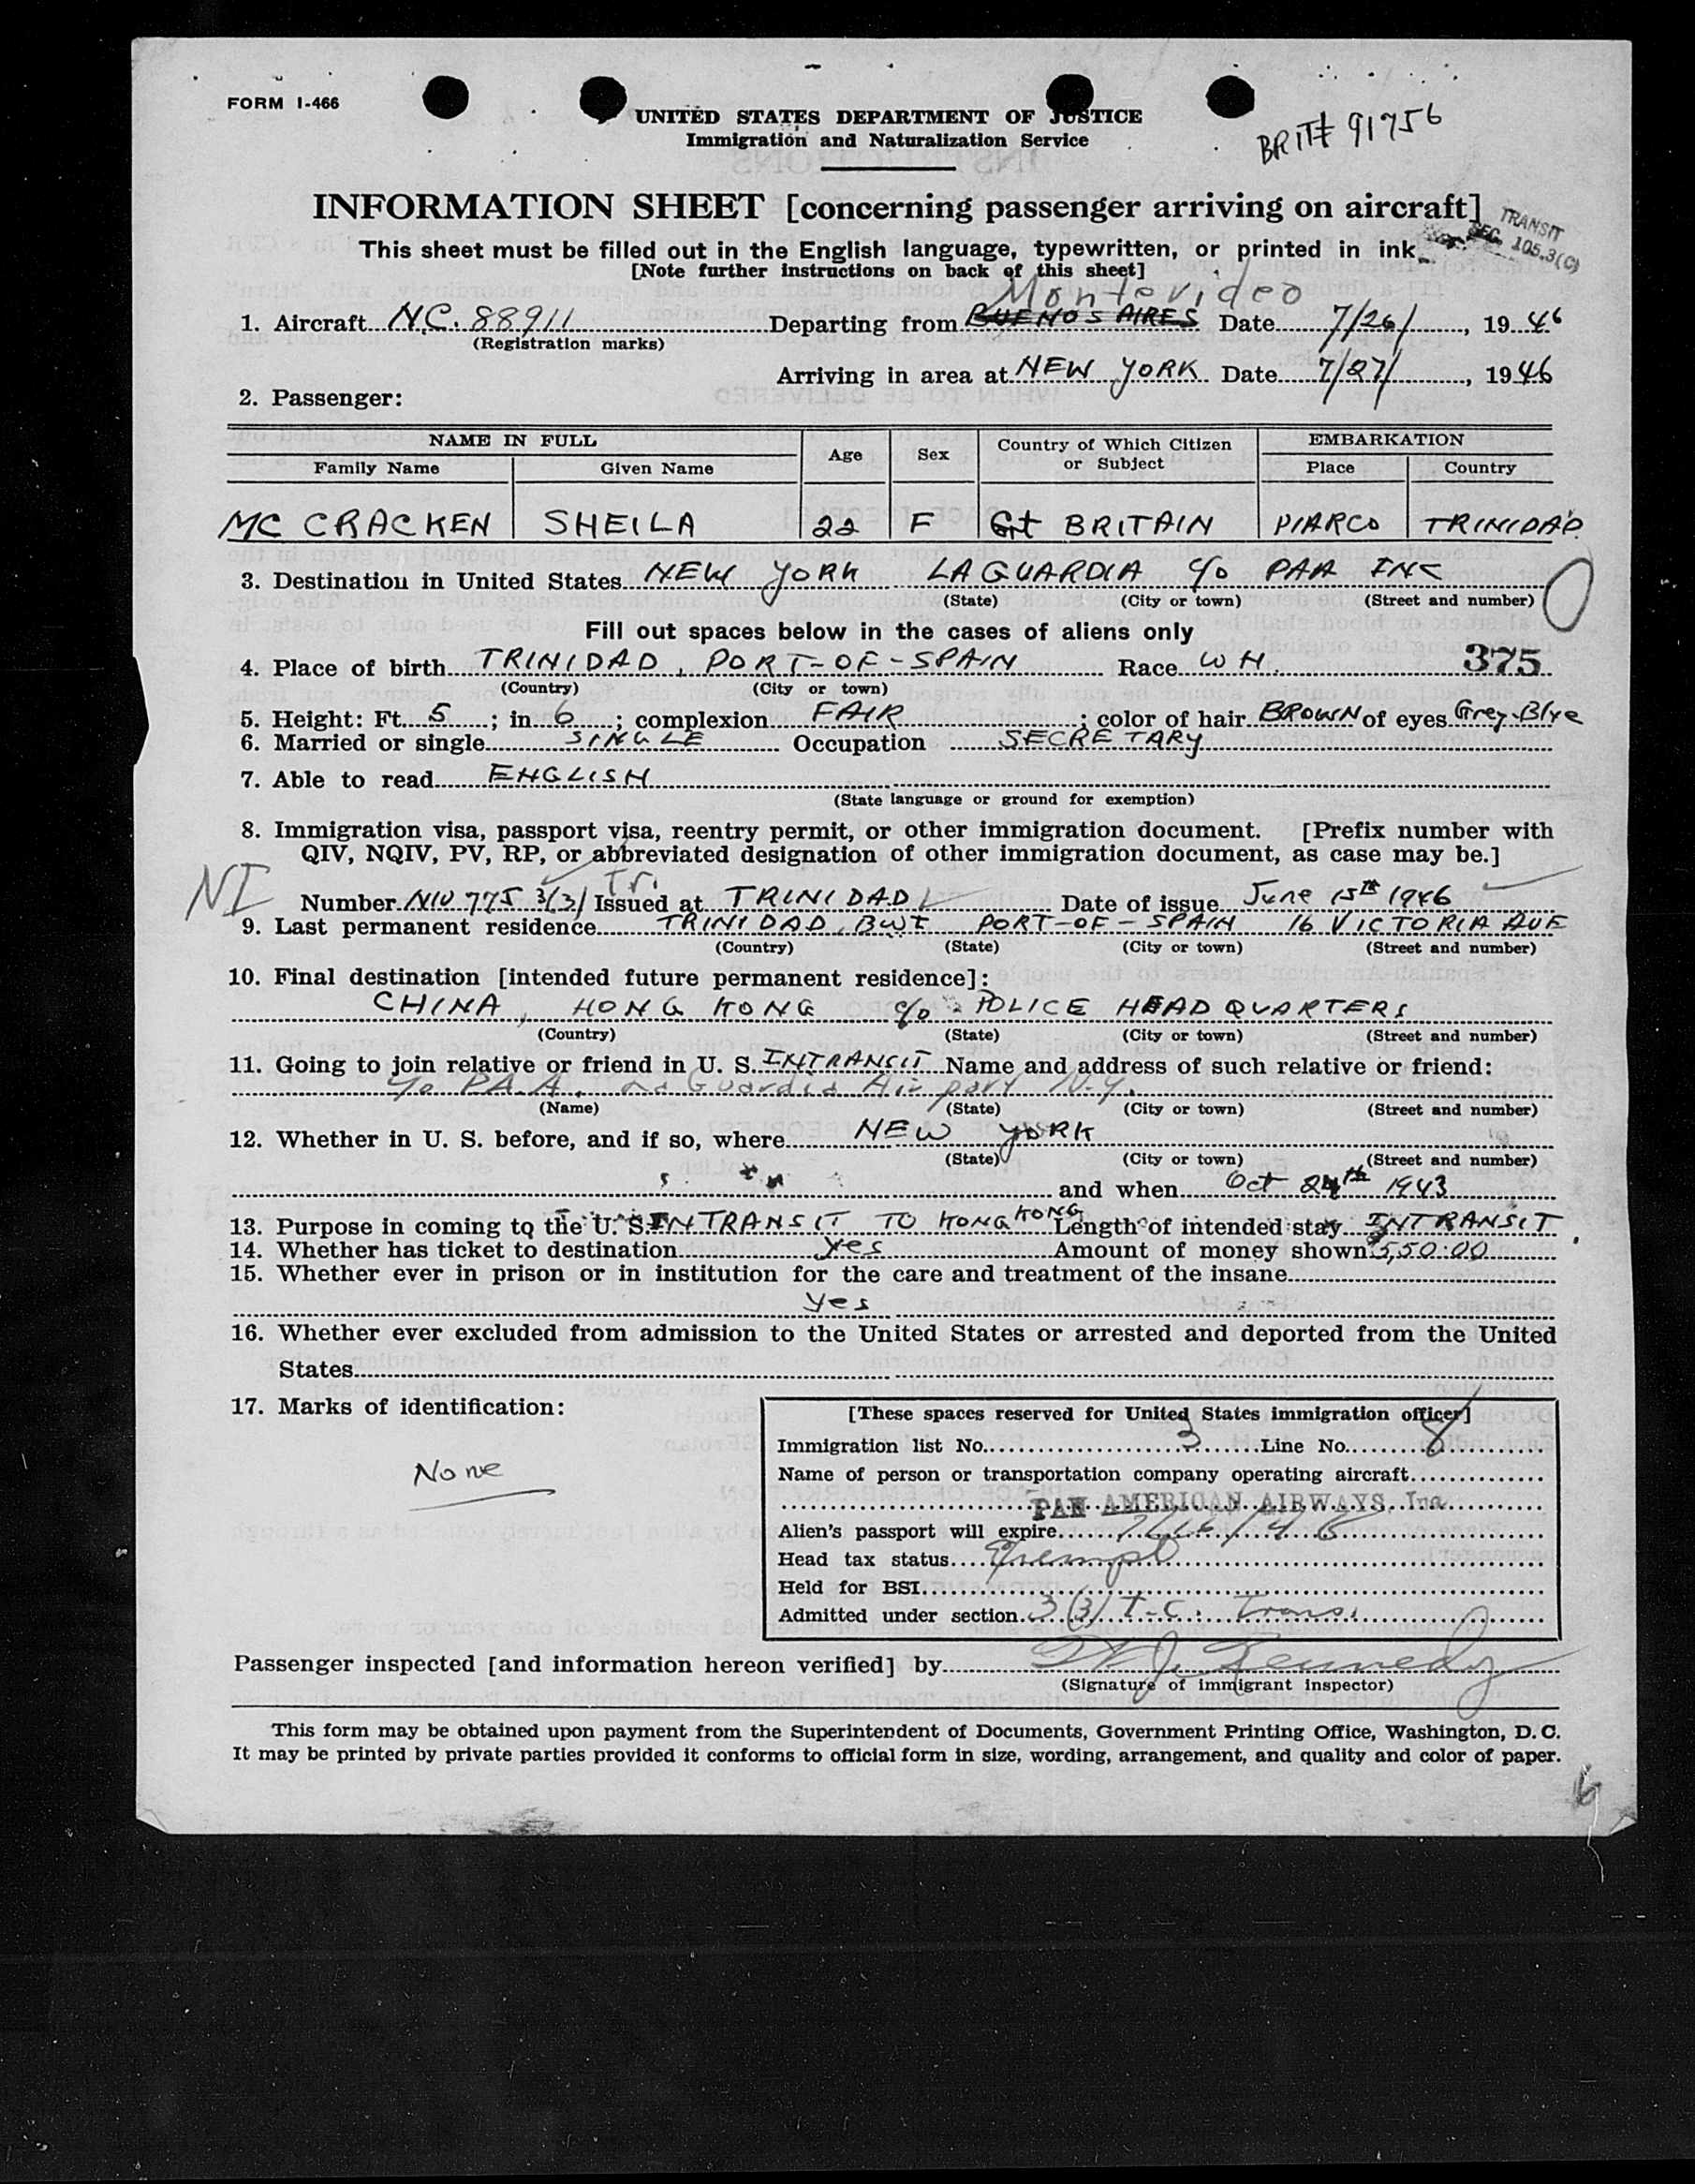 FORM I-466
UNITED STATES DEPARTMENT OF JUSTICE
Immigration and Naturalization Service
BRIT# 91756
INFORMATION SHEET [concerning passenger arriving on aircraft]
TRANSIT
SEC. 105.3(C)
This sheet must be filled out in the English language, typewritten, or printed in ink.
[Note further instructions on back of this sheet]
Montevideo
1. Aircraft N.C. 88911 Departing from BUENOS AIRES Date 7/26/, 1946
(Registration marks)
Arriving in area at NEW YORK Date 7/27/, 1946
2. Passenger:
NAME IN FULL Age Sex Country of Which Citizen or Subject EMBARKATION
Family Name Given Name Place Country
MC CRACKEN SHEILA 22 F Gt BRITAIN PIARCO TRINIDAD.
3. Destination in United States NEW YORK LA GUARDIA c/o PAA INC
(State) (City or town) (Street and number)
Fill out spaces below in the cases of aliens only
4. Place of birth TRINIDAD, PORT-OF-SPAIN Race WH. 375
(Country) (City or town)
5. Height: Ft. 5; in 6; complexion FAIR; color of hair BROWN of eyes Grey-Blye
6. Married or single SINGLE Occupation SECRETARY
7. Able to read ENGLISH
(State language or ground for exemption)
8. Immigration visa, passport visa, reentry permit, or other immigration document. [Prefix number with
QIV, NQIV, PV, RP, or abbreviated designation of other immigration document, as case may be.]
NI Tr.
Number NIV 775 3(3) Issued at TRINIDAD Date of issue June 15th 1946
9. Last permanent residence TRINIDAD, BWI PORT-OF-SPAIN 16 VICTORIA AVE
(Country) (State) (City or town) (Street and number)
10. Final destination [intended future permanent residence]:
CHINA, HONG KONG c/o POLICE HEADQUARTERS
(Country) (State) (City or town) (Street and number)
11. Going to join relative or friend in U. S. INTRANSIT Name and address of such relative or friend:
c/o P.A.A. La Guardia Air port N.Y.
(Name) (State) (City or town) (Street and number)
12. Whether in U. S. before, and if so, where NEW YORK
(State) (City or town) (Street and number)
and when Oct 24th 1943
13. Purpose in coming to the U. S. INTRANSIT TO HONG KONG Length of intended stay INTRANSIT
14. Whether has ticket to destination yes Amount of money shown 550:00
15. Whether ever in prison or in institution for the care and treatment of the insane
yes
16. Whether ever excluded from admission to the United States or arrested and deported from the United
States
17. Marks of identification:
None
[These spaces reserved for United States immigration officer]
Immigration list No. 3 Line No. 8
Name of person or transportation company operating aircraft
PAN AMERICAN AIRWAYS, Inc.
Alien's passport will expire
Head tax status Exempt
Held for BSI
Admitted under section 3(3) T-C. Trans.
Passenger inspected [and information hereon verified] by J. Kennedy
(Signature of immigrant inspector)
This form may be obtained upon payment from the Superintendent of Documents, Government Printing Office, Washington, D. C.
It may be printed by private parties provided it conforms to official form in size, wording, arrangement, and quality and color of paper.